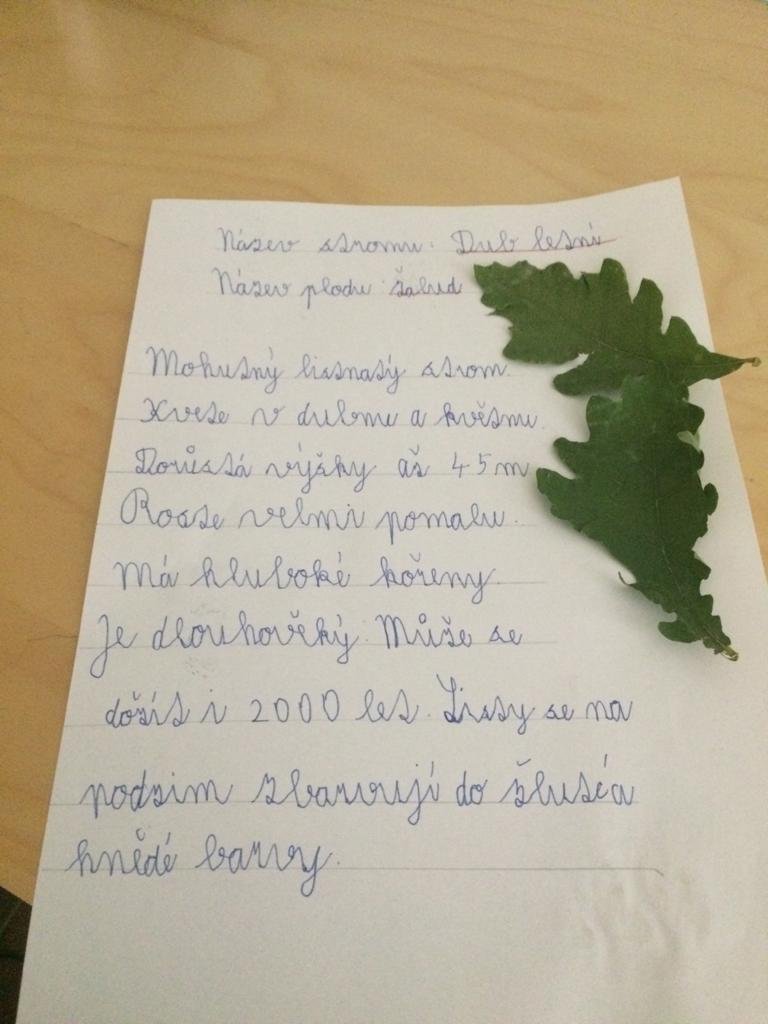 Název stromu: Dub letní
Název plodu: žalud
Mohutný listnatý strom.
Kvete v dubnu a květnu.
Dorůstá výšky až 45 m
Roste velmi pomalu.
Má hluboké kořeny.
Je dlouhověký. Může se
dožít i 2000 let. Listy se na
podzim zbarvují do žluté a
hnědé barvy.